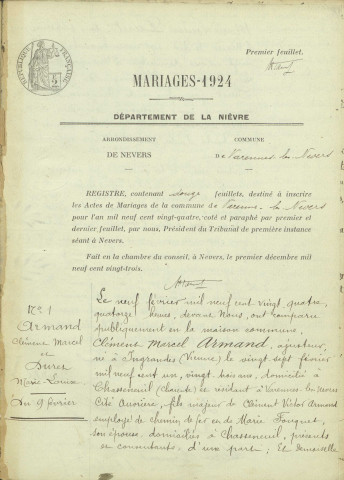 RÉPUBLIQUE FRANÇAISE
Premier feuillet.
MARIAGES-1924
DÉPARTEMENT DE LA NIÈVRE
ARRONDISSEMENT
DE NEVERS
COMMUNE
de Varennes-les-Nevers
REGISTRE, contenant douze feuillets, destiné à inscrire
les Actes de Mariages de la commune de Varennes-les-Nevers
pour l'an mil neuf cent vingt-quatre, coté et paraphé par premier et
dernier feuillet, par nous, Président du Tribunal de première instance
séant à Nevers.
Fait en la chambre du conseil, à Nevers, le premier décembre mil
neuf cent vingt-trois.
N° 1
Armand
Clément Marcel
et
Marie Louise
du 9 février
Le neuf février mil neuf cent vingt quatre,
quatorze heures, devant Nous, ont comparu
publiquement en la maison commune,
Clément Marcel Armand, ajusteur,
né à Ingrandes (Vienne) le vingt sept février
mil neuf cent un, vingt deux ans, domicilié à
Chasseneuil (Charente) et résidant à Varennes les Nevers
Cité Ouvrière, fils majeur de Clément Victor Armand
employé de chemin de fer et de Marie Fouquet,
son épouse, domiciliés à Chasseneuil, présents
et consentants d'une part; Et demoiselle